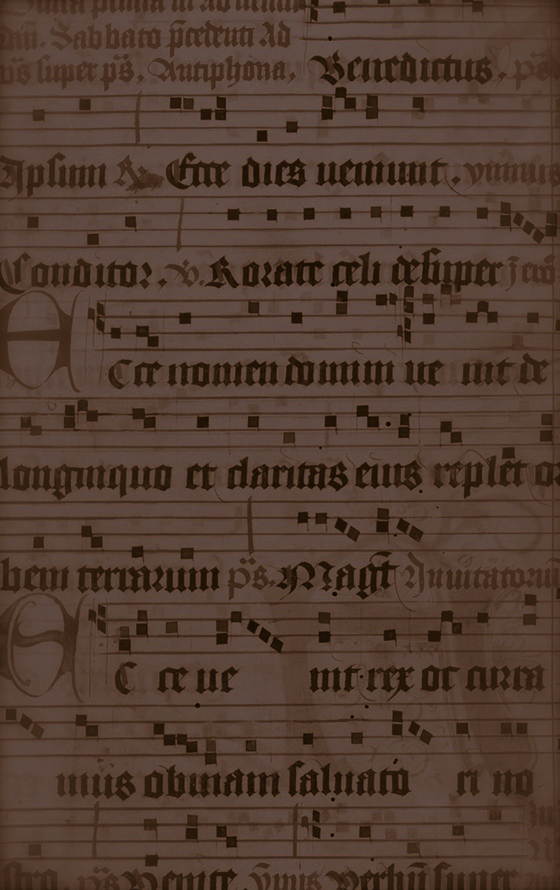 Sabbato p̄cedenti Ad
p̄s super p̄s. Antiphona. Benedictus. ps
Ipsum Ecce dies ueniunt. ymnus
Conditor. v. Rorate celi desuper
Ecce nomen domini ue nit de
longinquo et claritas eius replet or
bem terrarum p̄s. Magn̄t Inuitatorium
Ecce ue nit rex oc curra
mus obuiam saluato ri no
stro. p̄s Venite. ymnus Verbū super